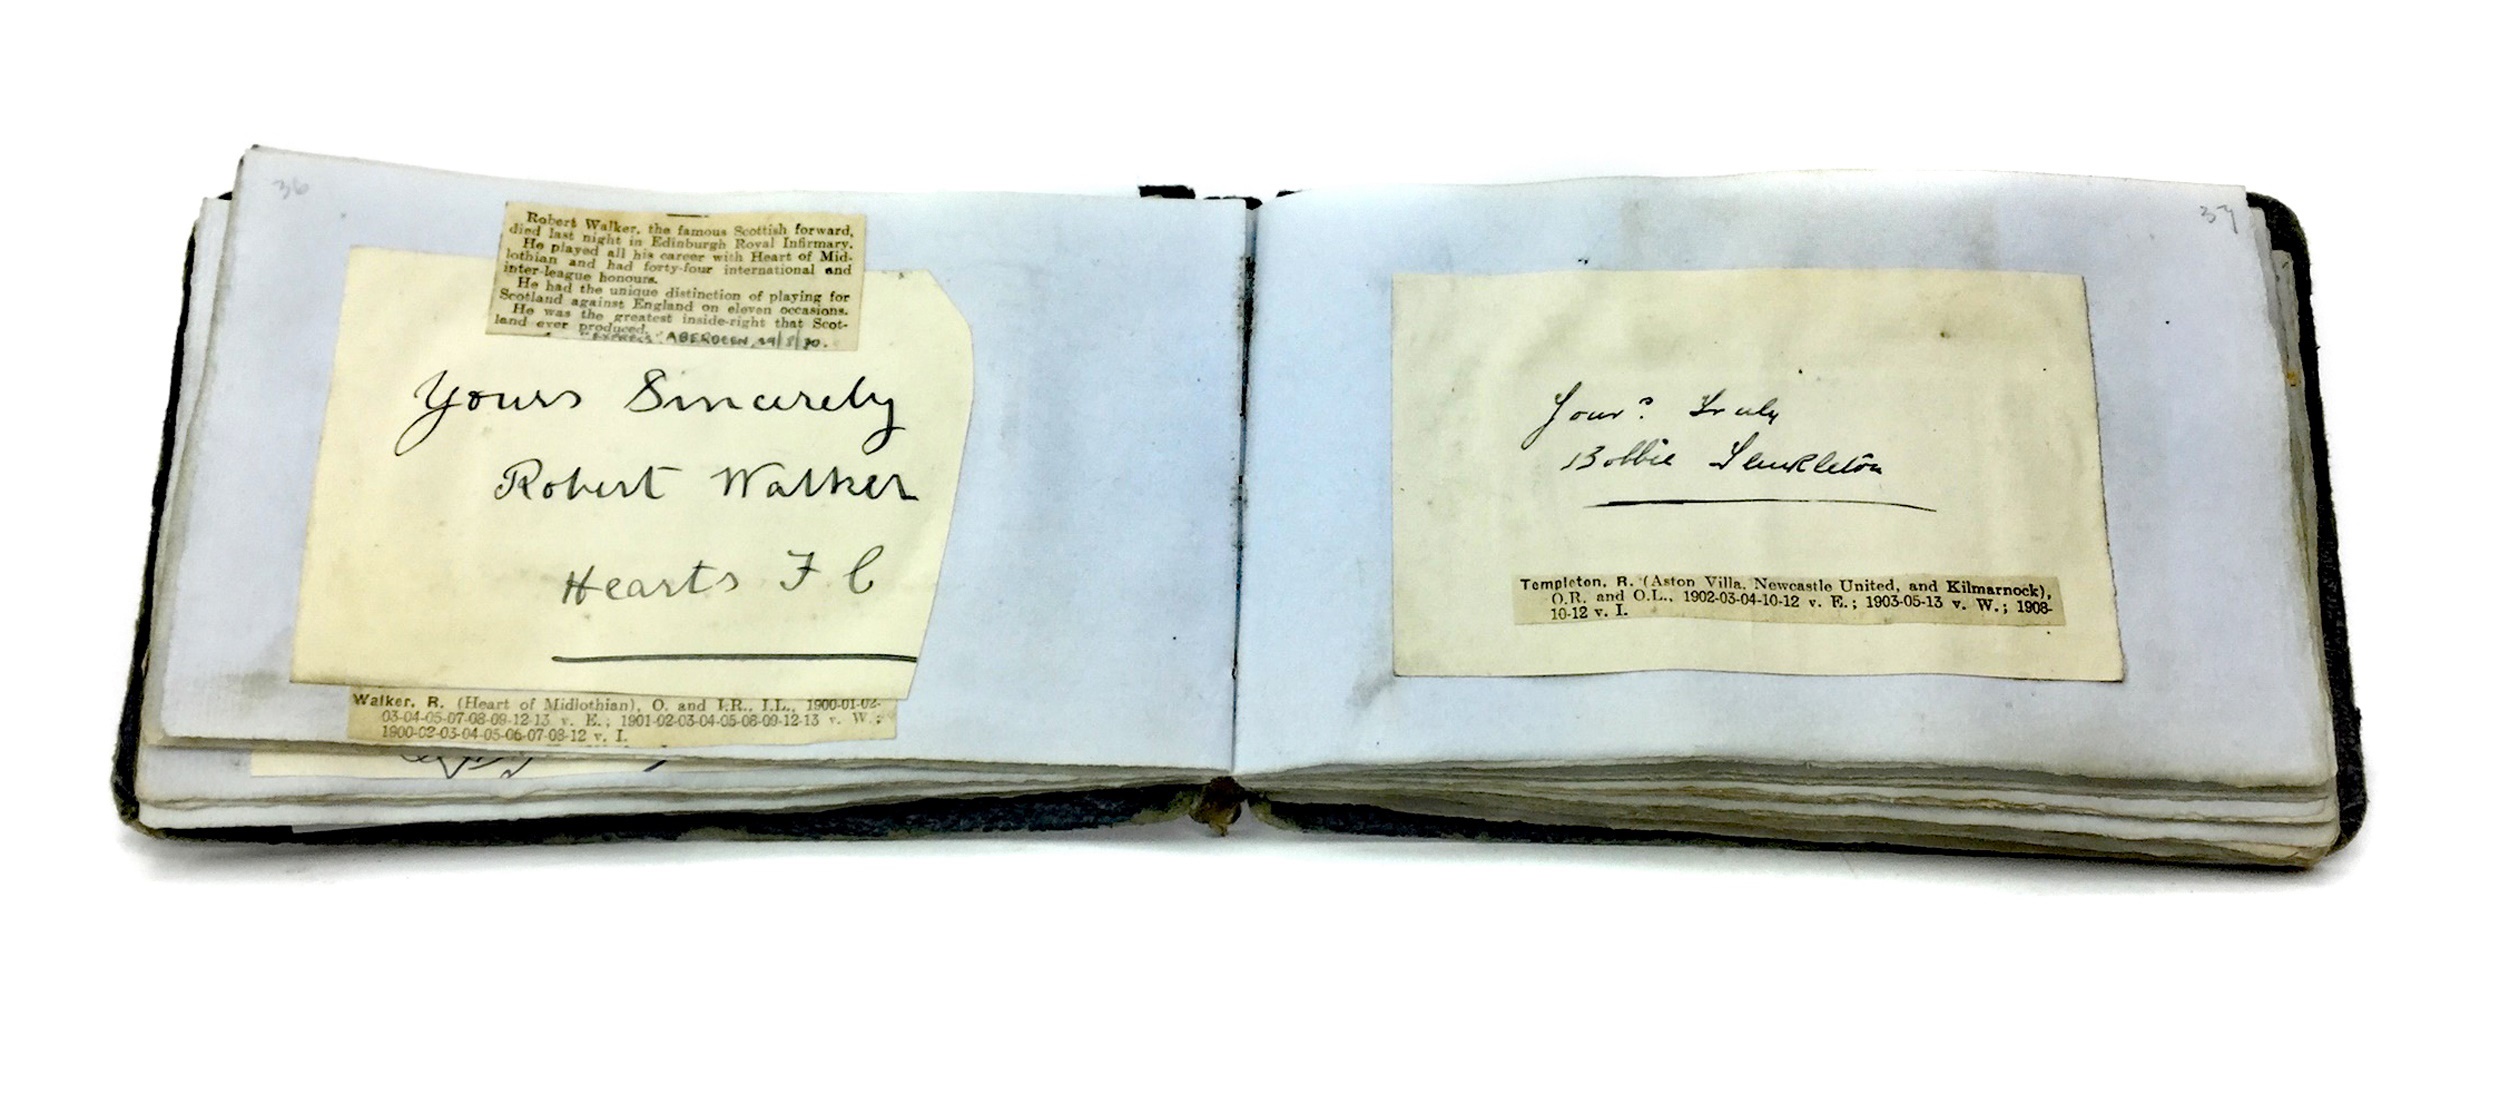 36
Robert Walker, the famous Scottish forward,
died last night in Edinburgh Royal Infirmary.
He played all his career with Heart of Mid-
lothian and had forty-four international and
inter-league honours.
He had the unique distinction of playing for
Scotland against England on eleven occasions.
He was the greatest inside-right that Scot-
land ever produced.
"EXPRESS" ABERDEEN, 29/8/30.
Yours Sincerely
Robert Walker
Hearts F C
Walker, R. (Heart of Midlothian), O. and I.R., I.L., 1900-01-02-
03-04-05-07-08-09-12-13 v. E.; 1901-02-03-04-05-08-09-12-13 v. W.;
1900-02-03-04-05-06-07-08-12 v. I.
37
Yours Truly
Bobbie Templeton
Templeton, R. (Aston Villa, Newcastle United, and Kilmarnock),
O.R. and O.L., 1902-03-04-10-12 v. E.; 1903-05-13 v. W.; 1908-
10-12 v. I.